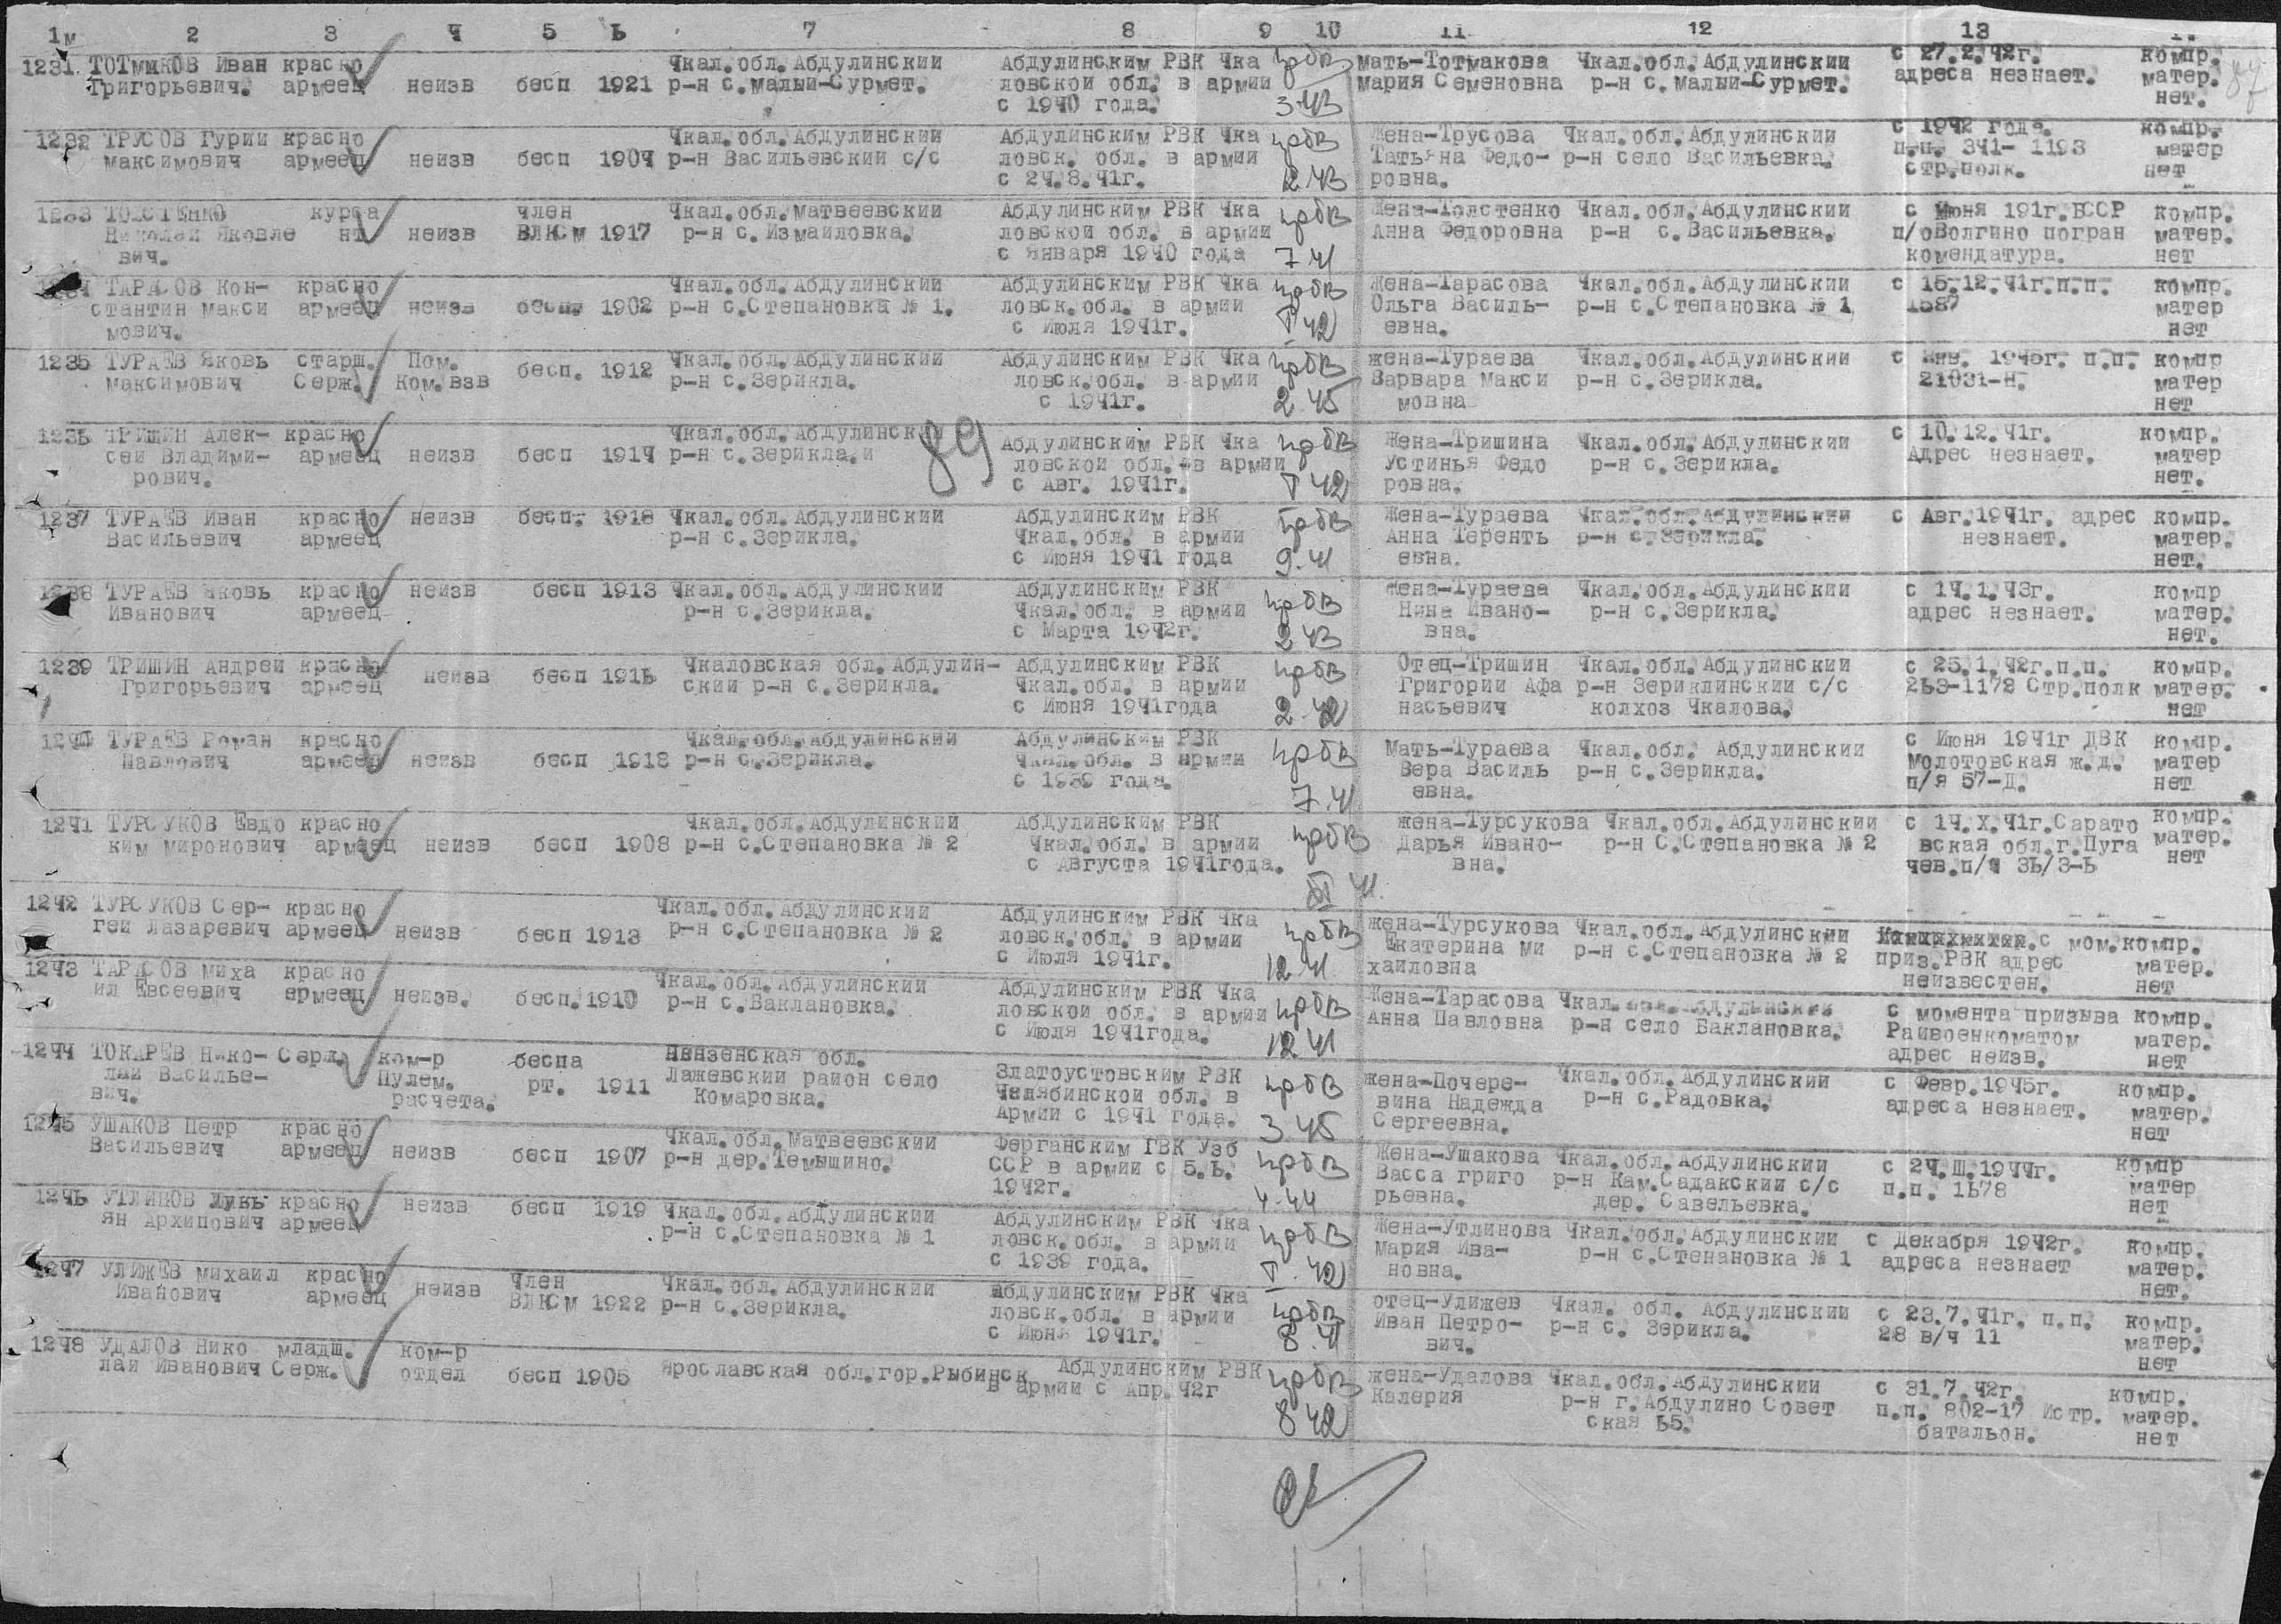 1 2 3 4 5 6 7 8 9 10 11 12 13
1231. ТОТМАКОВ Иван красно Чкал.обл.Абдулинский Абдулинским РВК Чка прбв Мать-Тотмакова Чкал.обл.Абдулинский с 27.2.42г. компр.
Григорьевич. армеец неизв бесп 1921 р-н с.Малый-Сурмет. ловской обл. в армии Мария Семеновна р-н с.Малый-Сурмет. адреса незнает. матер.
с 1940 года. 3.43 нет.
1232 ТРУСОВ Гурий красно Чкал.обл.Абдулинский Абдулинским РВК Чка прбв Жена-Трусова Чкал.обл.Абдулинский с 1942 года. компр.
Максимович армеец неизв бесп 1904 р-н Васильевский с/с ловск. обл. в армии Татьяна Федо- р-н село Васильевка. п.п. 341-1193 матер
с 24.8.41г. 2.43 ровна. стр.полк. нет
1233 ТОЛСТЕНКО курса член Чкал.обл.Матвеевский Абдулинским РВК Чка прбв Жена-Толстенко Чкал.обл.Абдулинский с Июня 191г.БССР компр.
Николай Яковле нт неизв ВЛКСМ 1917 р-н с.Измайловка. ловской обл. в армии Анна Федоровна р-н с.Васильевка. п/оВолгино погран матер.
вич. с Января 1940 года 7.41 комендатура. нет
1234 ТАРАСОВ Кон- красно Чкал.обл.Абдулинский Абдулинским РВК Чка прбв Жена-Тарасова Чкал.обл.Абдулинский с 15.12.41г.п.п. компр.
стантин Макси армеец неизв бесп. 1902 р-н с.Степановка № 1. ловск.обл. в армии Ольга Василь- р-н с.Степановка № 1 1587 матер
мович. с Июля 1941г. 42 евна. нет
1235 ТУРАЕВ Яковь старш. Пом. Чкал.обл.Абдулинский Абдулинским РВК Чка прбв жена-Тураева Чкал.обл.Абдулинский с Янв. 1945г. п.п. компр
Максимович Серж. Ком.взв бесп. 1912 р-н с.Зерикла. ловск.обл. в армии Варвара Макси р-н с.Зерикла. 21031-Н. матер
с 1941г. 2.45 мовна нет
1236 ТРИШИН Алек- красно Чкал.обл.Абдулинский 89 Абдулинским РВК Чка прбв Жена-Тришина Чкал.обл.Абдулинский с 10.12.41г. компр.
сей Владими- армеец неизв бесп 1914 р-н с.Зерикла.и ловской обл. в армии Устинья Федо р-н с.Зерикла. Адрес незнает. матер
рович. с Авг. 1941г. 42 ровна. нет.
1237 ТУРАЕВ Иван красно неизв бесп. 1918 Чкал.обл.Абдулинский Абдулинским РВК прбв Жена-Тураева Чкал.обл.Абдулинский с Авг.1941г. адрес компр.
Васильевич армеец р-н с.Зерикла. Чкал.обл. в армии Анна Теренть р-н с.Зерикла. незнает. матер.
с Июня 1941 года 9.41 евна. нет.
1238 ТУРАЕВ Яковь красно неизв бесп 1913 Чкал.обл.Абдулинский Абдулинским РВК прбв Жена-Тураева Чкал.обл.Абдулинский с 14.1.43г. компр
Иванович армеец р-н с.Зерикла. Чкал.обл. в армии Нина Ивано- р-н с.Зерикла. адрес незнает. матер.
с Марта 1942г. 2.43 вна. нет.
1239 ТРИШИН Андрей красно Чкаловская обл.Абдулин- Абдулинским РВК прбв Отец-Тришин Чкал.обл.Абдулинский с 25.1.42г.п.п. компр.
Григорьевич армеец неизв бесп 1916 ский р-н с.Зерикла. Чкал.обл. в армии Григорий Афа р-н Зериклинский с/с 263-1172 Стр.полк матер.
с Июня 1941года 2.42 насьевич колхоз Чкалова. нет
1240 ТУРАЕВ Роман красно Чкал.обл.Абдулинский Абдулинским РВК прбв Мать-Тураева Чкал.обл. Абдулинский с Июня 1941г ДВК компр.
Павлович армеец неизв бесп 1918 р-н с.Зерикла. Чкал.обл. в армии Вера Василь р-н с.Зерикла. Молотовская ж.д. матер
с 1939 года. 7.41 евна. п/я 57-Д. нет
1241 ТУРСУКОВ Евдо красно Чкал.обл.Абдулинский Абдулинским РВК прбв жена-Турсукова Чкал.обл.Абдулинский с 14.X.41г.Сарато компр.
ким Миронович армеец неизв бесп 1908 р-н с.Степановка № 2 Чкал.обл. в армии Дарья Ивано- р-н С.Степановка № 2 вская обл.г.Пуга матер.
с Августа 1941года. 41. вна. чев.п/я 36/3-6 нет
1242 ТУРСУКОВ Сер- красно Чкал.обл.Абдулинский Абдулинским РВК Чка прбв жена-Турсукова Чкал.обл.Абдулинский с мом. компр.
гей Лазаревич армеец неизв бесп 1913 р-н с.Степановка № 2 ловск.обл. в армии Екатерина Ми р-н с.Степановка № 2 приз.РВК адрес матер.
с Июля 1941г. 12.41 хайловна неизвестен. нет
1243 ТАРАСОВ Миха красно Чкал.обл.Абдулинский Абдулинским РВК Чка прбв Жена-Тарасова Чкал.обл.Абдулинский с момента призыва компр.
ил Евсеевич армеец неизв. бесп. 1910 р-н с.Баклановка. ловской обл. в армии Анна Павловна р-н село Баклановка. Райвоенкоматом матер.
с Июля 1941года. 12.41 адрес неизв. нет
1244 ТОКАРЕВ Нико- Серж. ком-р беспа Пензенская обл. Златоустовским РВК прбв жена-Почере- Чкал.обл.Абдулинский с Февр.1945г. компр.
лай Василье- Пулем. рт. 1911 Лажевский район село Челябинской обл. в вина Надежда р-н с.Радовка. адреса незнает. матер.
вич. расчета. Комаровка. Армии с 1941 года. 3.45 Сергеевна. нет
1245 УШАКОВ Петр красно Чкал.обл.Матвеевский Ферганским ГВК Узб прбв Жена-Ушакова Чкал.обл.Абдулинский с 24.Ш.1944г. компр
Васильевич армеец неизв бесп 1907 р-н дер.Темышино. ССР в армии с 5.6. Васса григо р-н Кам.Садакский с/с п.п. 1678 матер
1942г. 4.44 рьевна. дер. Савельевка. нет
1246 УТЛИНОВ Лукь красно неизв бесп 1919 Чкал.обл.Абдулинский Абдулинским РВК Чка прбв Жена-Утлинова Чкал.обл.Абдулинский с Декабря 1942г. компр.
ян Архипович армеец р-н с.Степановка № 1 ловск.обл. в армии Мария Ива- р-н с.Степановка № 1 адреса незнает матер.
с 1939 года. 42 новна. нет.
1247 УЛИЖЕВ Михаил красно неизв член Чкал.обл.Абдулинский Абдулинским РВК Чка прбв отец-Улижев Чкал. обл. Абдулинский с 23.7.41г. п.п. компр.
Иванович армеец ВЛКСМ 1922 р-н с.Зерикла. ловск.обл. в армии Иван Петро- р-н с. Зерикла. 28 в/ч 11 матер.
с Июня 1941г. 8.41 вич. нет
1248 УДАЛОВ Нико младш. ком-р Ярославская обл.гор.Рыбинск Абдулинским РВК прбв жена-Удалова Чкал.обл.Абдулинский с 31.7.42г. компр.
лай Иванович Серж. отдел бесп 1905 в армии с Апр.42г Калерия р-н г.Абдулино Совет п.п. 802-17 Истр. матер.
8.42 ская 65. батальон. нет